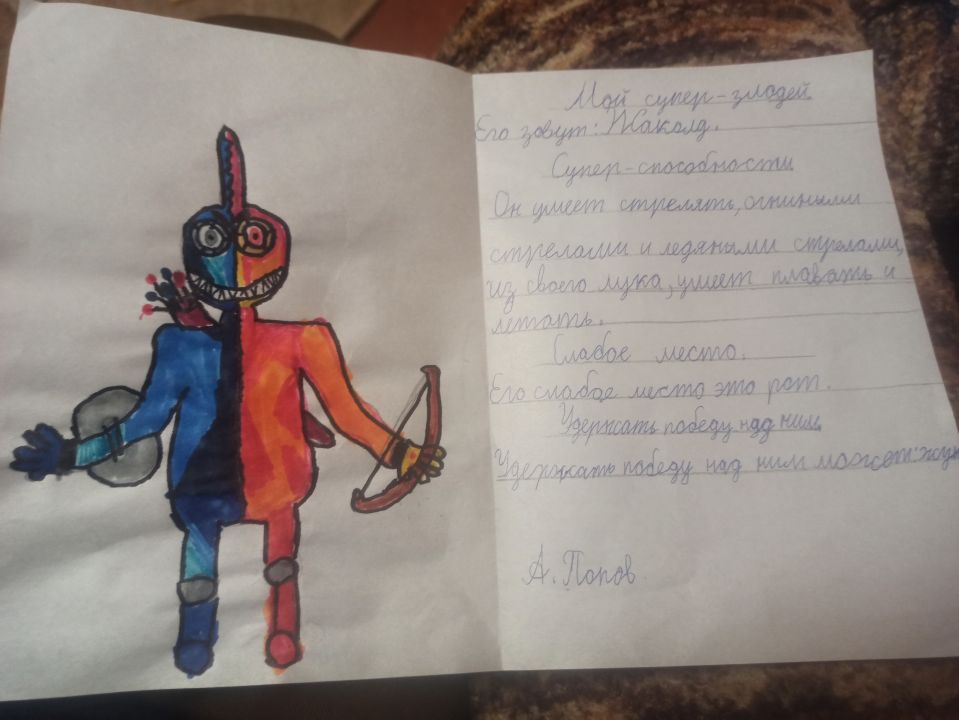 Мой супер-злодей
Его зовут: Жаколд.
Супер-способности
Он умеет стрелять, огниными
стрелами и ледяными стрелами,
из своего лука, умеет плавать и
летать.
Слабое место.
Его слабое место это рот.
Удержать победу над ним
Удержать победу над ним может:
А. Попов